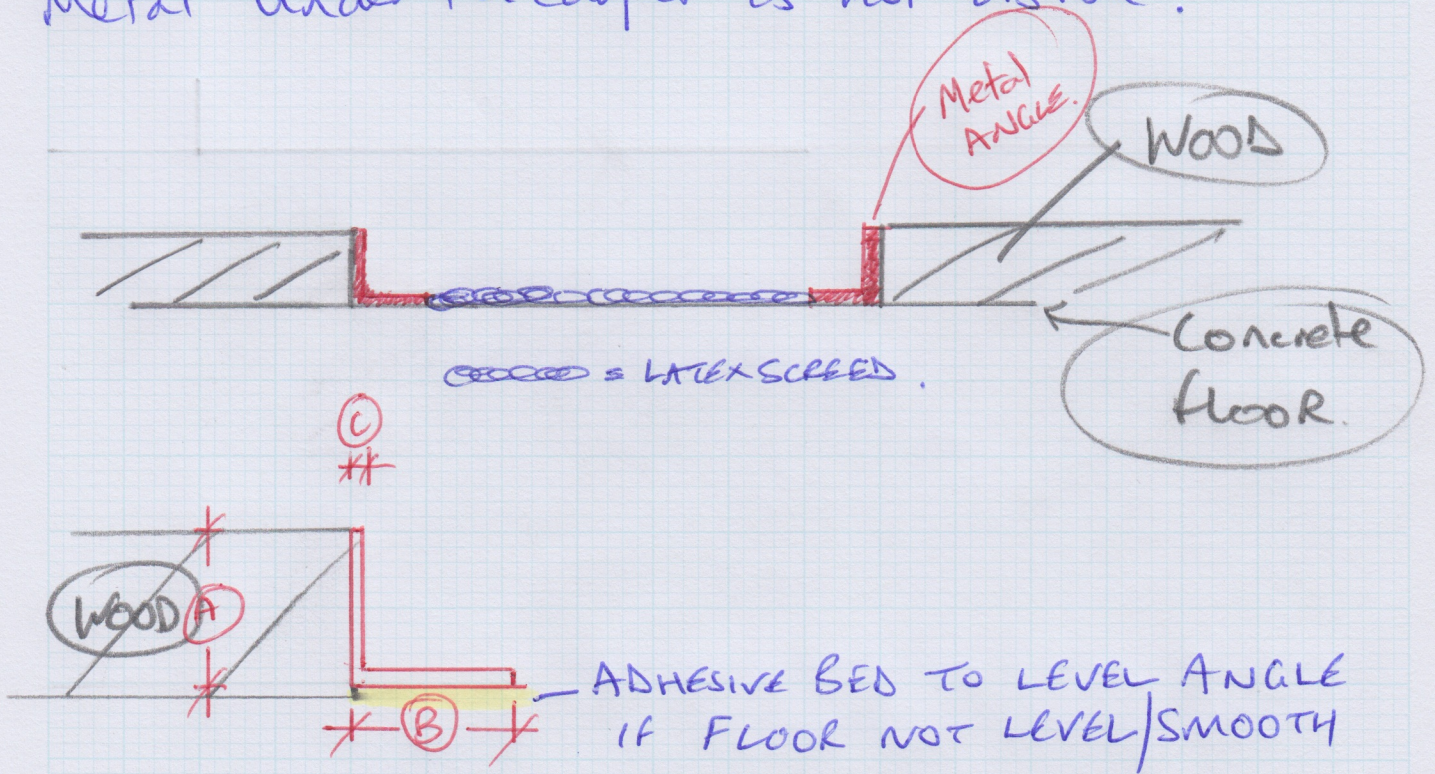 Metal under
is not
Metal
ANGLE.
WOOD
Concrete
flooR.
= LATEX SCREED.
C
WOOD
A
B
ADHESIVE BED TO LEVEL ANGLE
IF FLOOR NOT LEVEL/SMOOTH